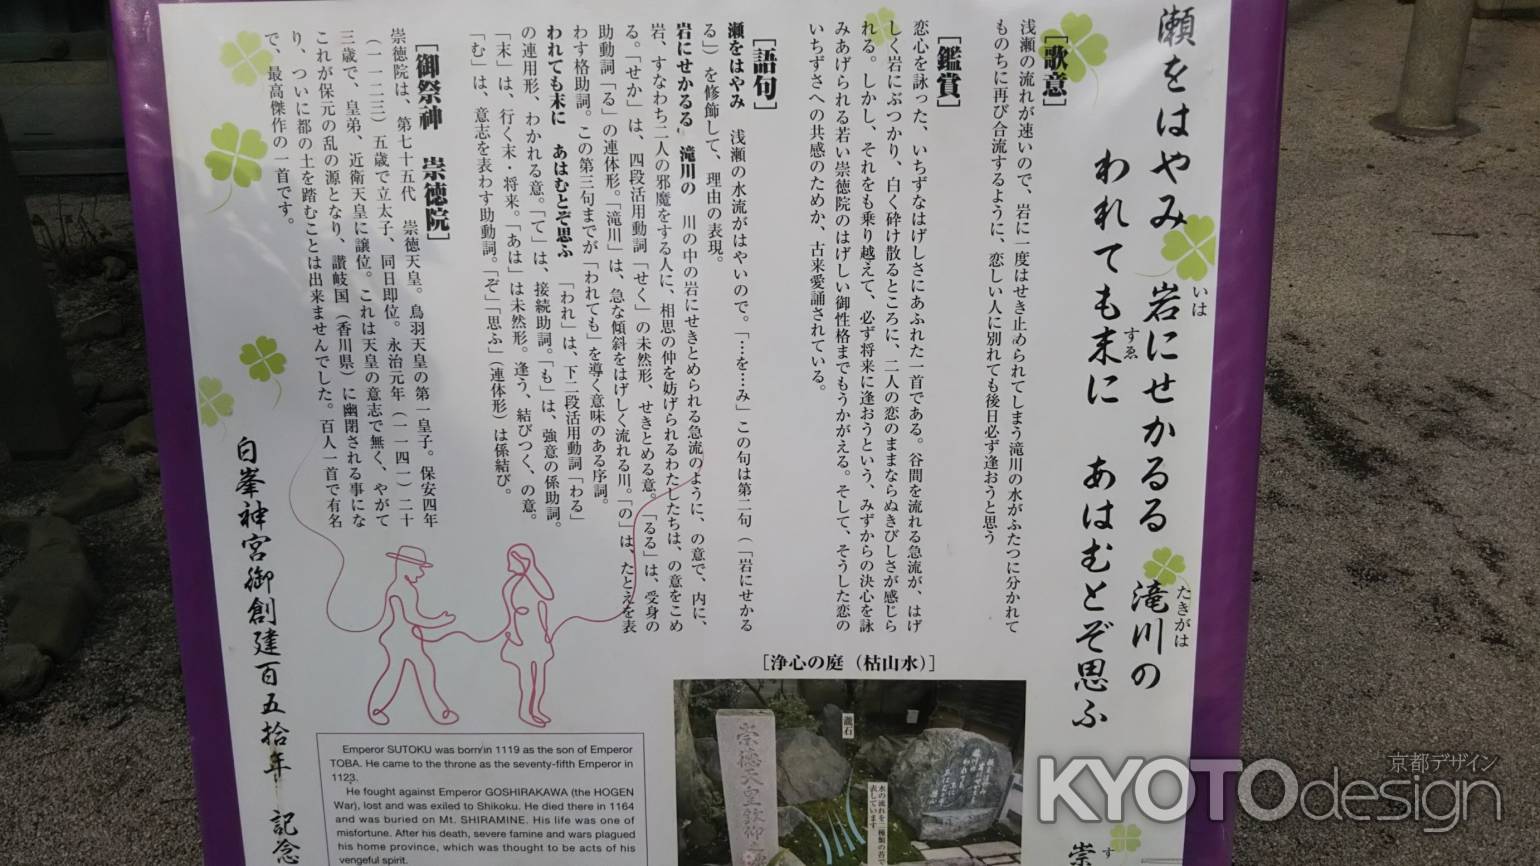 瀬をはやみ 岩にせかるる 滝川の
いは
たきがは
われても末に あはむとぞ思ふ
すゑ
崇
す
［歌意］
浅瀬の流れが速いので、岩に一度はせき止められてしまう滝川の水がふたつに分かれて
ものちに再び合流するように、恋しい人に別れても後日必ず逢おうと思う
［鑑賞］
恋心を詠った、いちずなはげしさにあふれた一首である。谷間を流れる急流が、はげ
しく岩にぶつかり、白く砕け散るところに、二人の恋のままならぬきびしさが感じら
れる。しかし、それをも乗り越えて、必ず将来に逢おうという、みずからの決心を詠
みあげられる若い崇徳院のはげしい御性格までもうかがえる。そして、そうした恋の
いちずさへの共感のためか、古来愛誦されている。
［語句］
瀬をはやみ 浅瀬の水流がはやいので。「…を…み」この句は第二句（「岩にせかる
る」）を修飾して、理由の表現。
岩にせかるる 滝川の 川の中の岩にせきとめられる急流のように、の意で、内に、
岩、すなわち二人の邪魔をする人に、相思の仲を妨げられるわたしたちは、の意をこめ
る。「せか」は、四段活用動詞「せく」の未然形、せきとめる意。「るる」は、受身の
助動詞「る」の連体形。「滝川」は、急な傾斜をはげしく流れる川。「の」は、たとえを表
わす格助詞。この第三句までが「われても」を導く意味のある序詞。
われても末に あはむとぞ思ふ 「われ」は、下二段活用動詞「わる」
の連用形、わかれる意。「て」は、接続助詞。「も」は、強意の係助詞。
「末」は、行く末・将来。「あは」は未然形。逢う、結びつく、の意。
「む」は、意志を表わす助動詞。「ぞ」「思ふ」（連体形）は係結び。
［御祭神 崇徳院］
崇徳院は、第七十五代 崇徳天皇。鳥羽天皇の第一皇子。保安四年
（一一二三）五歳で立太子、同日即位。永治元年（一一四一）二十
三歳で、皇弟、近衛天皇に譲位。これは天皇の意志で無く、やがて
これが保元の乱の源となり、讃岐国（香川県）に幽閉される事にな
り、ついに都の土を踏むことは出来ませんでした。百人一首で有名
で、最高傑作の一首です。
白峯神宮御創建百五拾年 記念
［浄心の庭（枯山水）］
崇徳天皇欽仰
瀧石
水の流れを二種類の苔で
表しています
Emperor SUTOKU was born in 1119 as the son of Emperor
TOBA. He came to the throne as the seventy-fifth Emperor in
1123.
He fought against Emperor GOSHIRAKAWA (the HOGEN
War), lost and was exiled to Shikoku. He died there in 1164
and was buried on Mt. SHIRAMINE. His life was one of
misfortune. After his death, severe famine and wars plagued
his home province, which was thought to be acts of his
vengeful spirit.
京都デザイン
KYOTOdesign